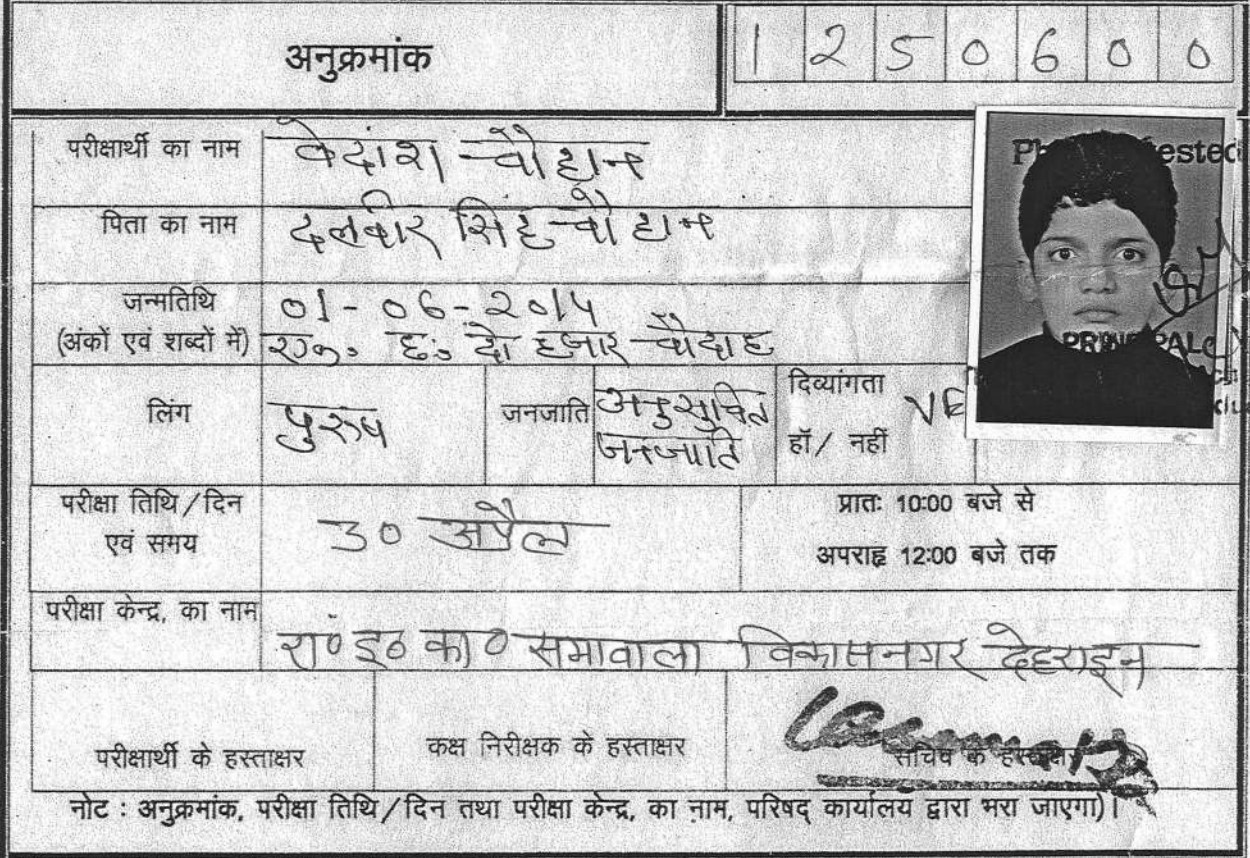 अनुक्रमांक 1 2 5 0 6 0 0
परीक्षार्थी का नाम वेदांश चौहान
पिता का नाम दलबीर सिंह चौहान
जन्मतिथि 01-06-2014
(अंकों एवं शब्दों में) एक. छः दो हजार चौदाह
लिंग पुरुष जनजाति अनुसुचित जनजाति दिव्यांगता
हॉ / नहीं
परीक्षा तिथि / दिन
एवं समय 30 अप्रैल
प्रातः 10:00 बजे से
अपराह्न 12:00 बजे तक
परीक्षा केन्द्र, का नाम
रा० इ० का० सभावाला विकासनगर देहरादून
परीक्षार्थी के हस्ताक्षर कक्ष निरीक्षक के हस्ताक्षर सचिव के हस्ताक्षर
नोट : अनुक्रमांक, परीक्षा तिथि / दिन तथा परीक्षा केन्द्र, का नाम, परिषद् कार्यालय द्वारा भरा जाएगा)।
PRINCIPAL